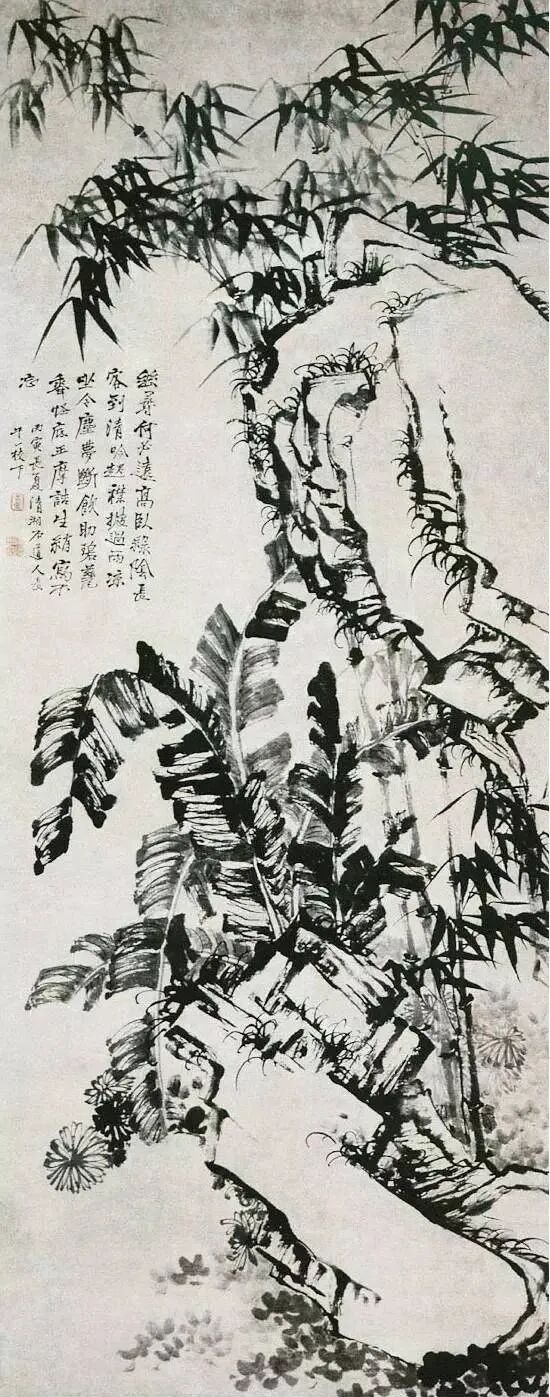 幽尋何必遠高臥綠陰長
客到清吟起襟披過雨涼
坐令塵夢斷飲助碧筩
香怪底王摩詰生綃寫不
忘
丙寅長夏清湘石道人長
干一枝下